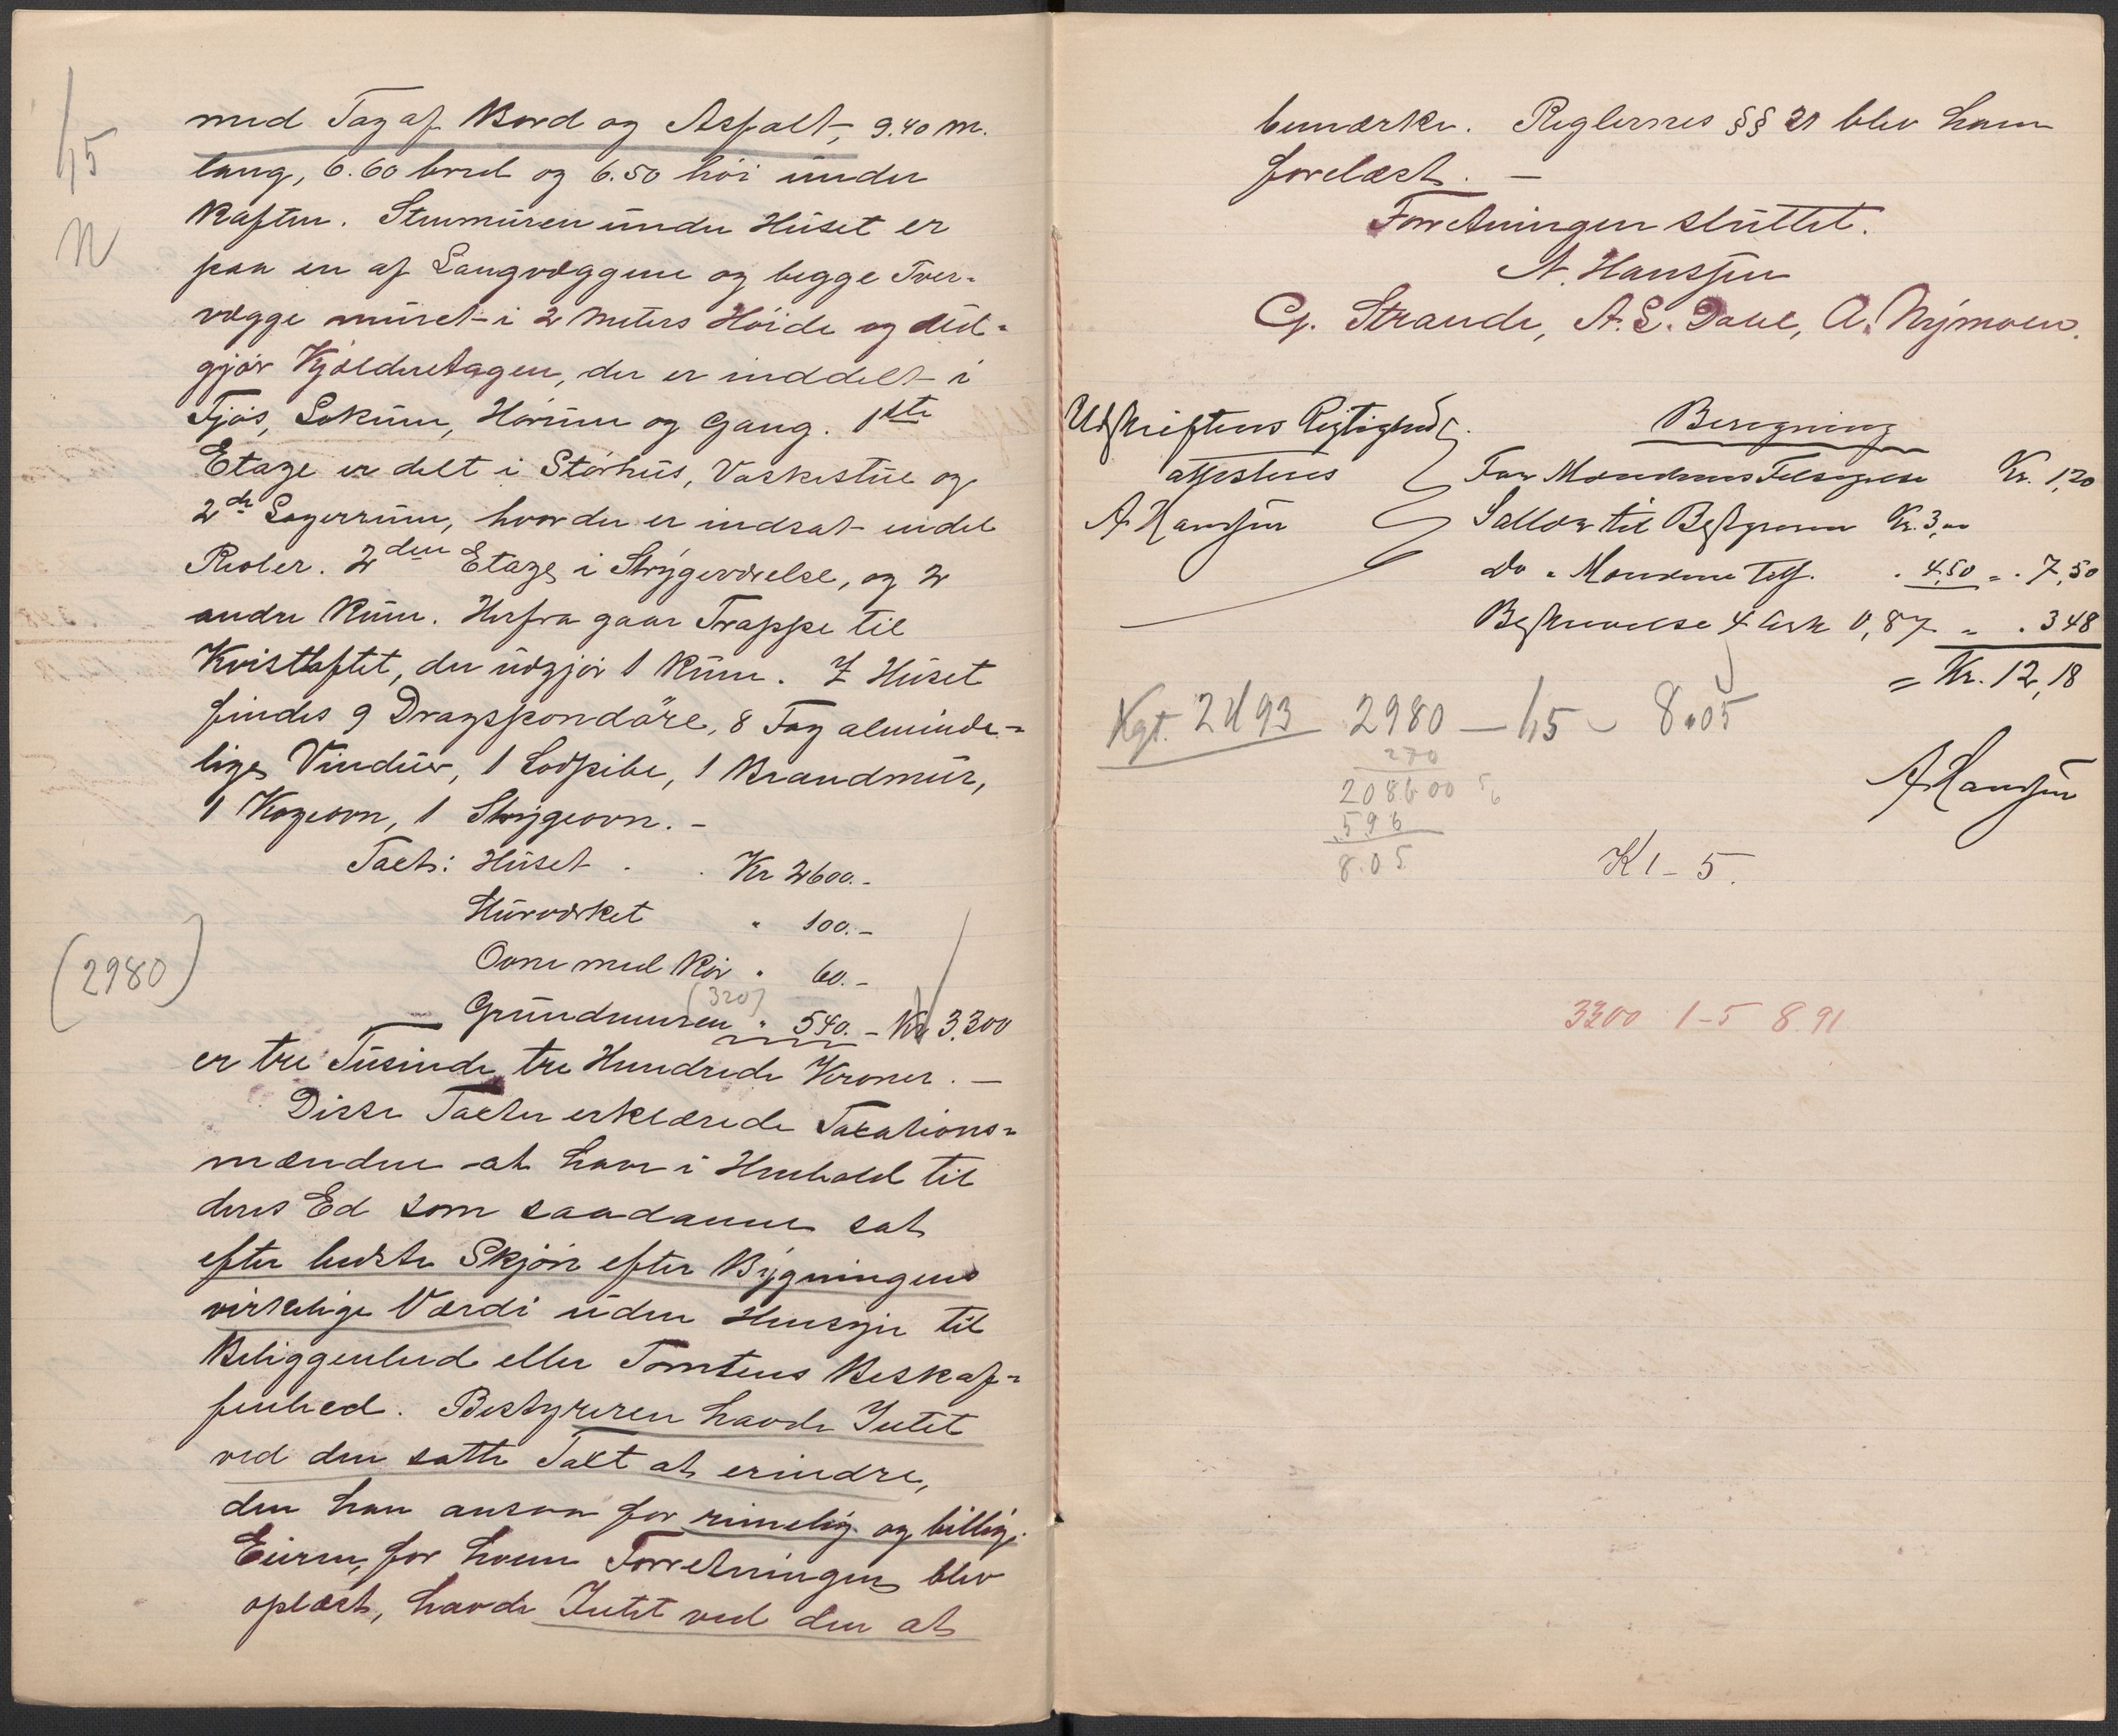 med Tag af Bord og Asfalt, 9.40 m.
lang, 6.60 bred og 6.50 høi under
Raften. Stenmuren under Huset er
paa en af Langvæggene og begge Tver-
vægge muret i 2 Meters Høide og ud-
gjør Kjælderetagen, der er inddelt i
Fjøs, Lokum, Hørum og Gang. 1ste
Etage er delt i Størhus, Vaskestue og
2de Lagerrum, hvor der er indsat endel
Reoler. 2den Etage i Strygeværelse, og 2
andre Rum. Herfra gaar Trappe til
Kvistloftet, der udgjør 1 Rum. I Huset
findes 9 Dragspondøre, 8 Fag alminde-
lige Vinduer, 1 Lodpibe, 1 Brandmur,
1 Kogeovn, 1 Strygeovn. -
Taxt: Huset . . Kr 2600.-
Murværket " 100.-
Ovne med Rør " 60.-
(320)
Grundmuren " 540.- Kr 3.300
er tre Tusinde tre Hundrede Kroner. -
Disse Taxter erklærede Taxations-
mændene at have i Henhold til
deres Ed som saadanne sat
efter bedste Skjøn efter Bygningens
virkelige Værdi uden Hensyn til
Beliggenhed eller Tomtens Beskaf-
fenhed. Bestyreren havde Intet
ved den satte Taxt at erindre,
den han ansaa for rimelig og billig.
Eieren, for hvem Forretningen blev
oplæst, havde Intet ved den at
1/5
N
(2980)
bemærke. Reglernes §§ 21 blev ham
forelæst. -
Forretningen sluttet.
A. Hanssen
G. Strande, A. L. Dahl, A. Nymoen.
Udskriftens Rigtighed
attesteres
A Hanssen
Beregning
For Mændenes Tilsigelse Kr. 1,20
Sallær til Bestyreren Kr. 3,00
do " Mændene Tils. " 4,50 = " 7,50
Beskrivelse 4 Ark 0,87 = " 3 48
= Kr. 12,18
A Hanssen
Kgt. 2/1 93 2980 - 1/5 - 8.05
270
208600
596
8.05
Kl - 5.
3300 1-5 8.91